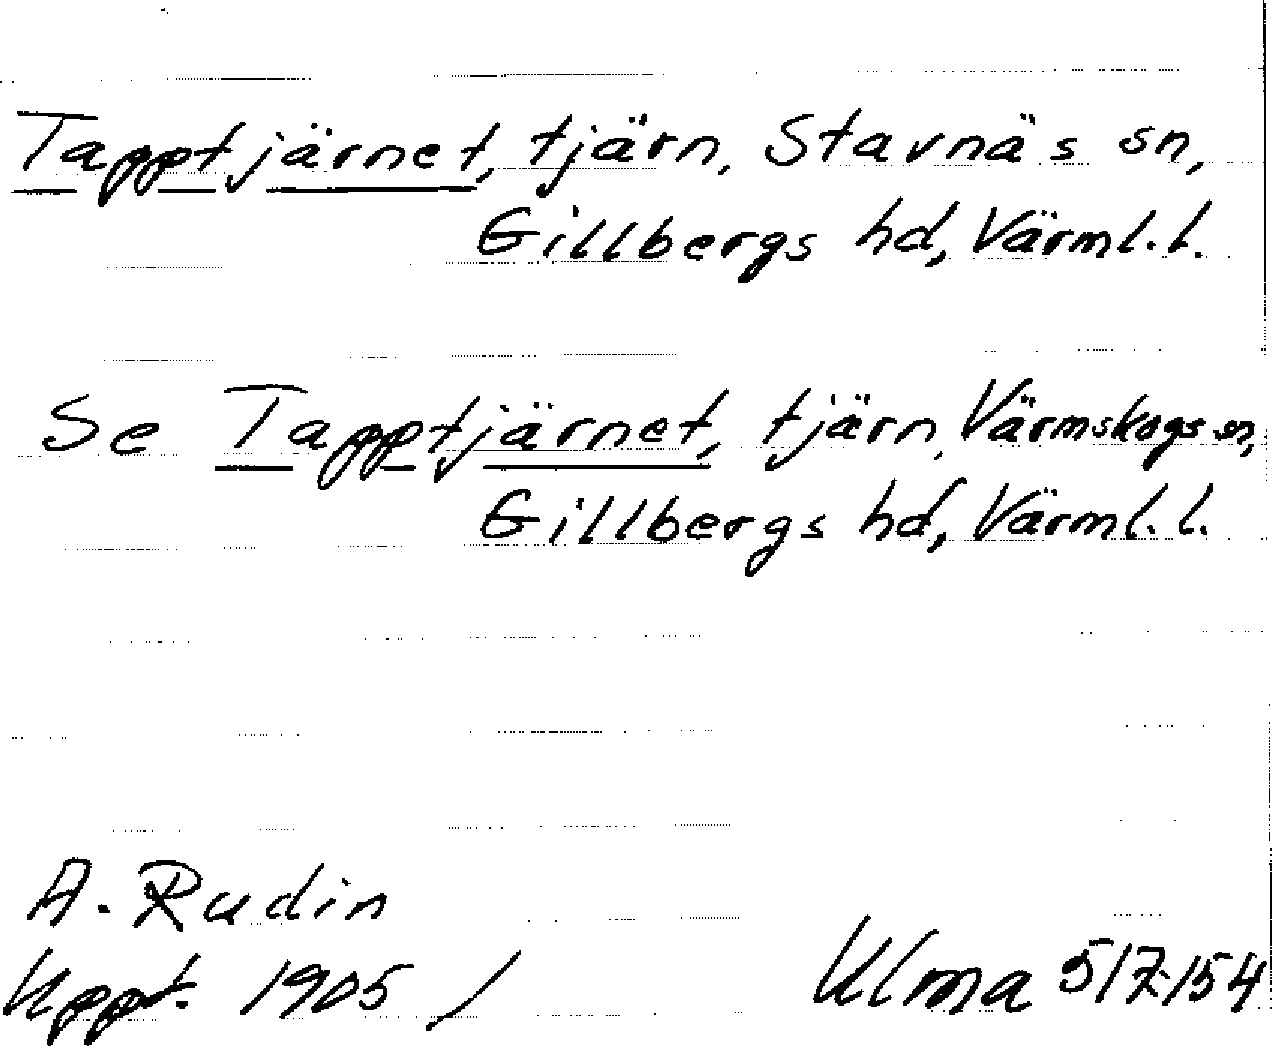 Tapptjärnet, tjärn, Stavnäs sn,
Gillbergs hd, Värml. l.
Se Tapptjärnet, tjärn, Värmskogs sn,
Gillbergs hd, Värml. l.
A. Rudin
Uppt. 1905 /
Ulma 517:154